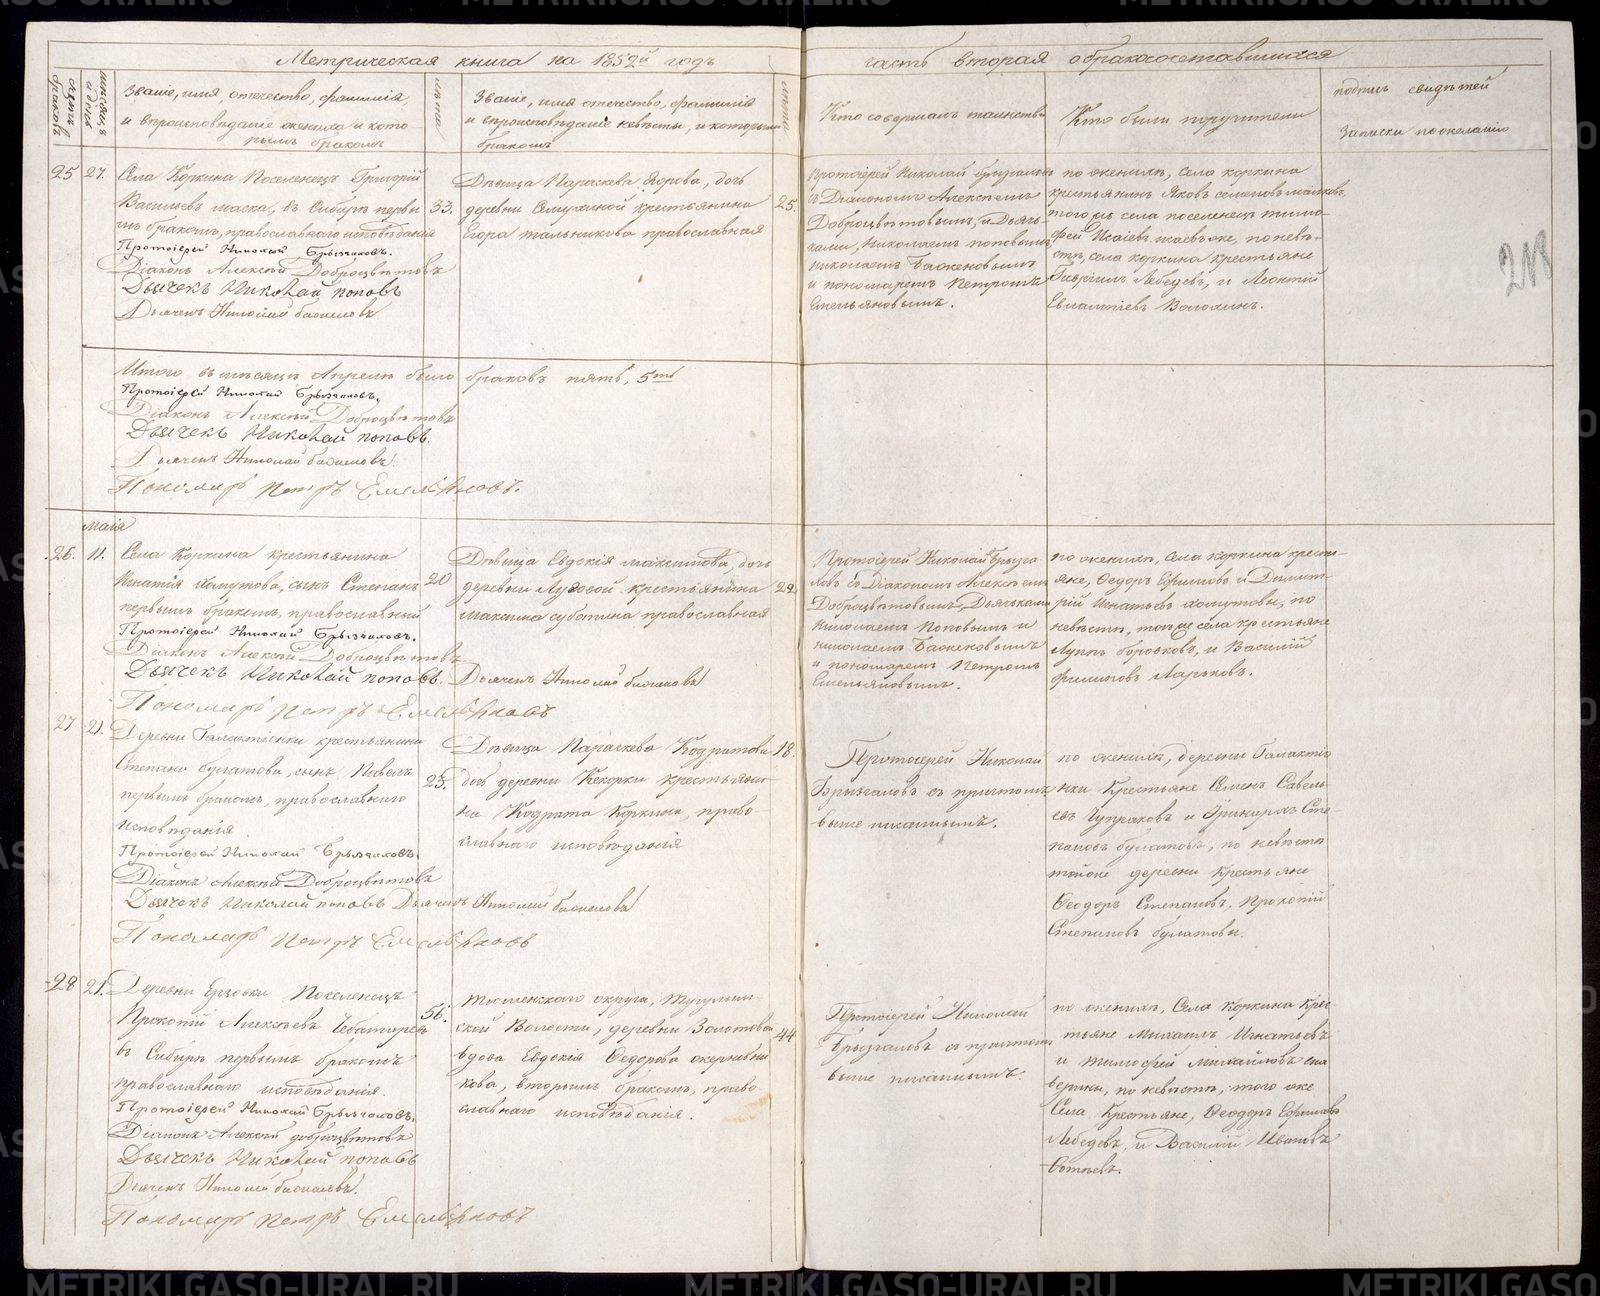 Метрическая книга на 1852й годъ
часть вторая о бракосочетавшихся
счетъ браковъ
мѣсяцъ и день
Званіе, имя, отечество, фамилія,
и вѣроисповѣданіе жениха и кото-
рымъ бракомъ
лѣта
Званіе, имя отечество, фамилія
и вѣроисповѣданіе невѣсты, и которымъ
бракомъ
лѣта
Кто совершалъ таинство
Кто были поручители
подпись свидѣтелей
записки по желанію
218
25 27.
Села Коркина Поселенецъ Григорій
Васильевъ маска, въ Сибири первы
мъ бракомъ, православнаго исповѣданія
33.
Протоіерей Николай Брызгаловъ.
Діаконъ Алексѣй Доброцвѣтовъ
Дьячекъ Николай поповъ
Дьячекъ Николай
Дѣвица Параскева Егорова, дочь
деревни крестьянина
Егора тальникова православная
25.
Протоіерей Николай Брызгаловъ
съ Діакономъ Алексѣемъ
Доброцвѣтовымъ, и Дьяч-
ками, Николаемъ поповымъ
Николаемъ Баженовымъ
и пономаремъ Петромъ
Емельяновымъ.
по женихѣ, села коркина
крестьянинъ Яковъ семеновъ
того жъ села поселенецъ тимо-
фей Исаіевъ по невѣ-
стѣ, села коркина крестьяне
Гаврилъ Лебедевъ, и Леонтій
Евлампіевъ Волохинъ.
Итого въ мѣсяцѣ Апрелѣ было браковъ пять, 5ть
Протоіерей Николай Брызгаловъ.
Діаконъ Алексѣй Доброцвѣтовъ
Дьячекъ Николай поповъ.
Дьячекъ Николай
Пономарь Петръ Емельяновъ.
маія
26. 11.
Села Коркина крестьянина
Игнатія Хомутова, сынъ Степанъ
первымъ бракомъ, православный
20
Протоіерей Николай Брызгаловъ.
Діаконъ Алексѣй Доброцвѣтовъ
Дьячекъ Николай поповъ.
Дьячекъ Николай
Пономарь Петръ Емельяновъ
Дѣвица Евдокія максимова, дочь
деревни Луговой крестьянина
максима суботина православная
22.
Протоіерей Николай Брызга-
ловъ съ Діакономъ Алексѣемъ
Доброцвѣтовымъ, Дьячками
Николаемъ Поповымъ и
Николаемъ Баженовымъ
и пономаремъ Петромъ
Емельяновымъ.
по женихѣ, села коркина кресть-
яне, Федоръ Ефимовъ и Димит-
рій Игнатьевъ хомутовы, по
невѣстѣ, того же села крестьяне
Лупъ боровковъ, и Василій
филиповъ Марковъ.
27 21.
Деревни крестьянина
Степана булатова, сынъ Павелъ
первымъ бракомъ, православнаго
исповѣданія
23.
Протоіерей Николай Брызгаловъ.
Діаконъ Алексѣй Доброцвѣтовъ
Дьячекъ Николай поповъ Дьячекъ Николай
Пономарь Петръ Емельяновъ
Дѣвица Параскева Кодратова
дочь деревни Кекорки крестьяни-
на Кодрата Коркина, право-
славнаго исповѣданія
18.
Протоіерей Николай
Брызгаловъ съ причтомъ
выше писаннымъ.
по женихѣ, деревни Галакті-
нки Крестьяне Семенъ Савель-
евъ Чупраковъ и Сте-
пановъ булатовъ, по невѣстѣ
той же деревни Крестьяне
Феодоръ Степановъ, Прокопій
Степановъ булатовы.
28 21.
Деревни Ерзовки Поселенецъ
Прокопій Алексѣевъ Чеботаревъ
въ Сибири первымъ бракомъ
православнаго исповѣданія.
56.
Протоіерей Николай Брызгаловъ.
Діаконъ Алексѣй доброцвѣтовъ
Дьячекъ Николай поповъ
Дьячекъ Николай
Пономарь Петръ Емельяновъ
тюменскаго округа, Тугулым-
ской Волости, деревни Золотовой
вдова Евдокія Федорова ожерни-
кова, вторымъ бракомъ, право-
славнаго исповѣданія.
44
Протоіерей Николай
Брызгаловъ съ причтомъ
выше писаннымъ.
по женихѣ, Села Коркина Крес-
тьяне Михаилъ Игнатьевъ
и тимофей михайловъ ска-
верины, по невѣстѣ, того же
Села Крестьяне, Феодоръ Ефимовъ
Лебедевъ, и Василій Ивановъ
METRIKI.GASO-URAL.RU